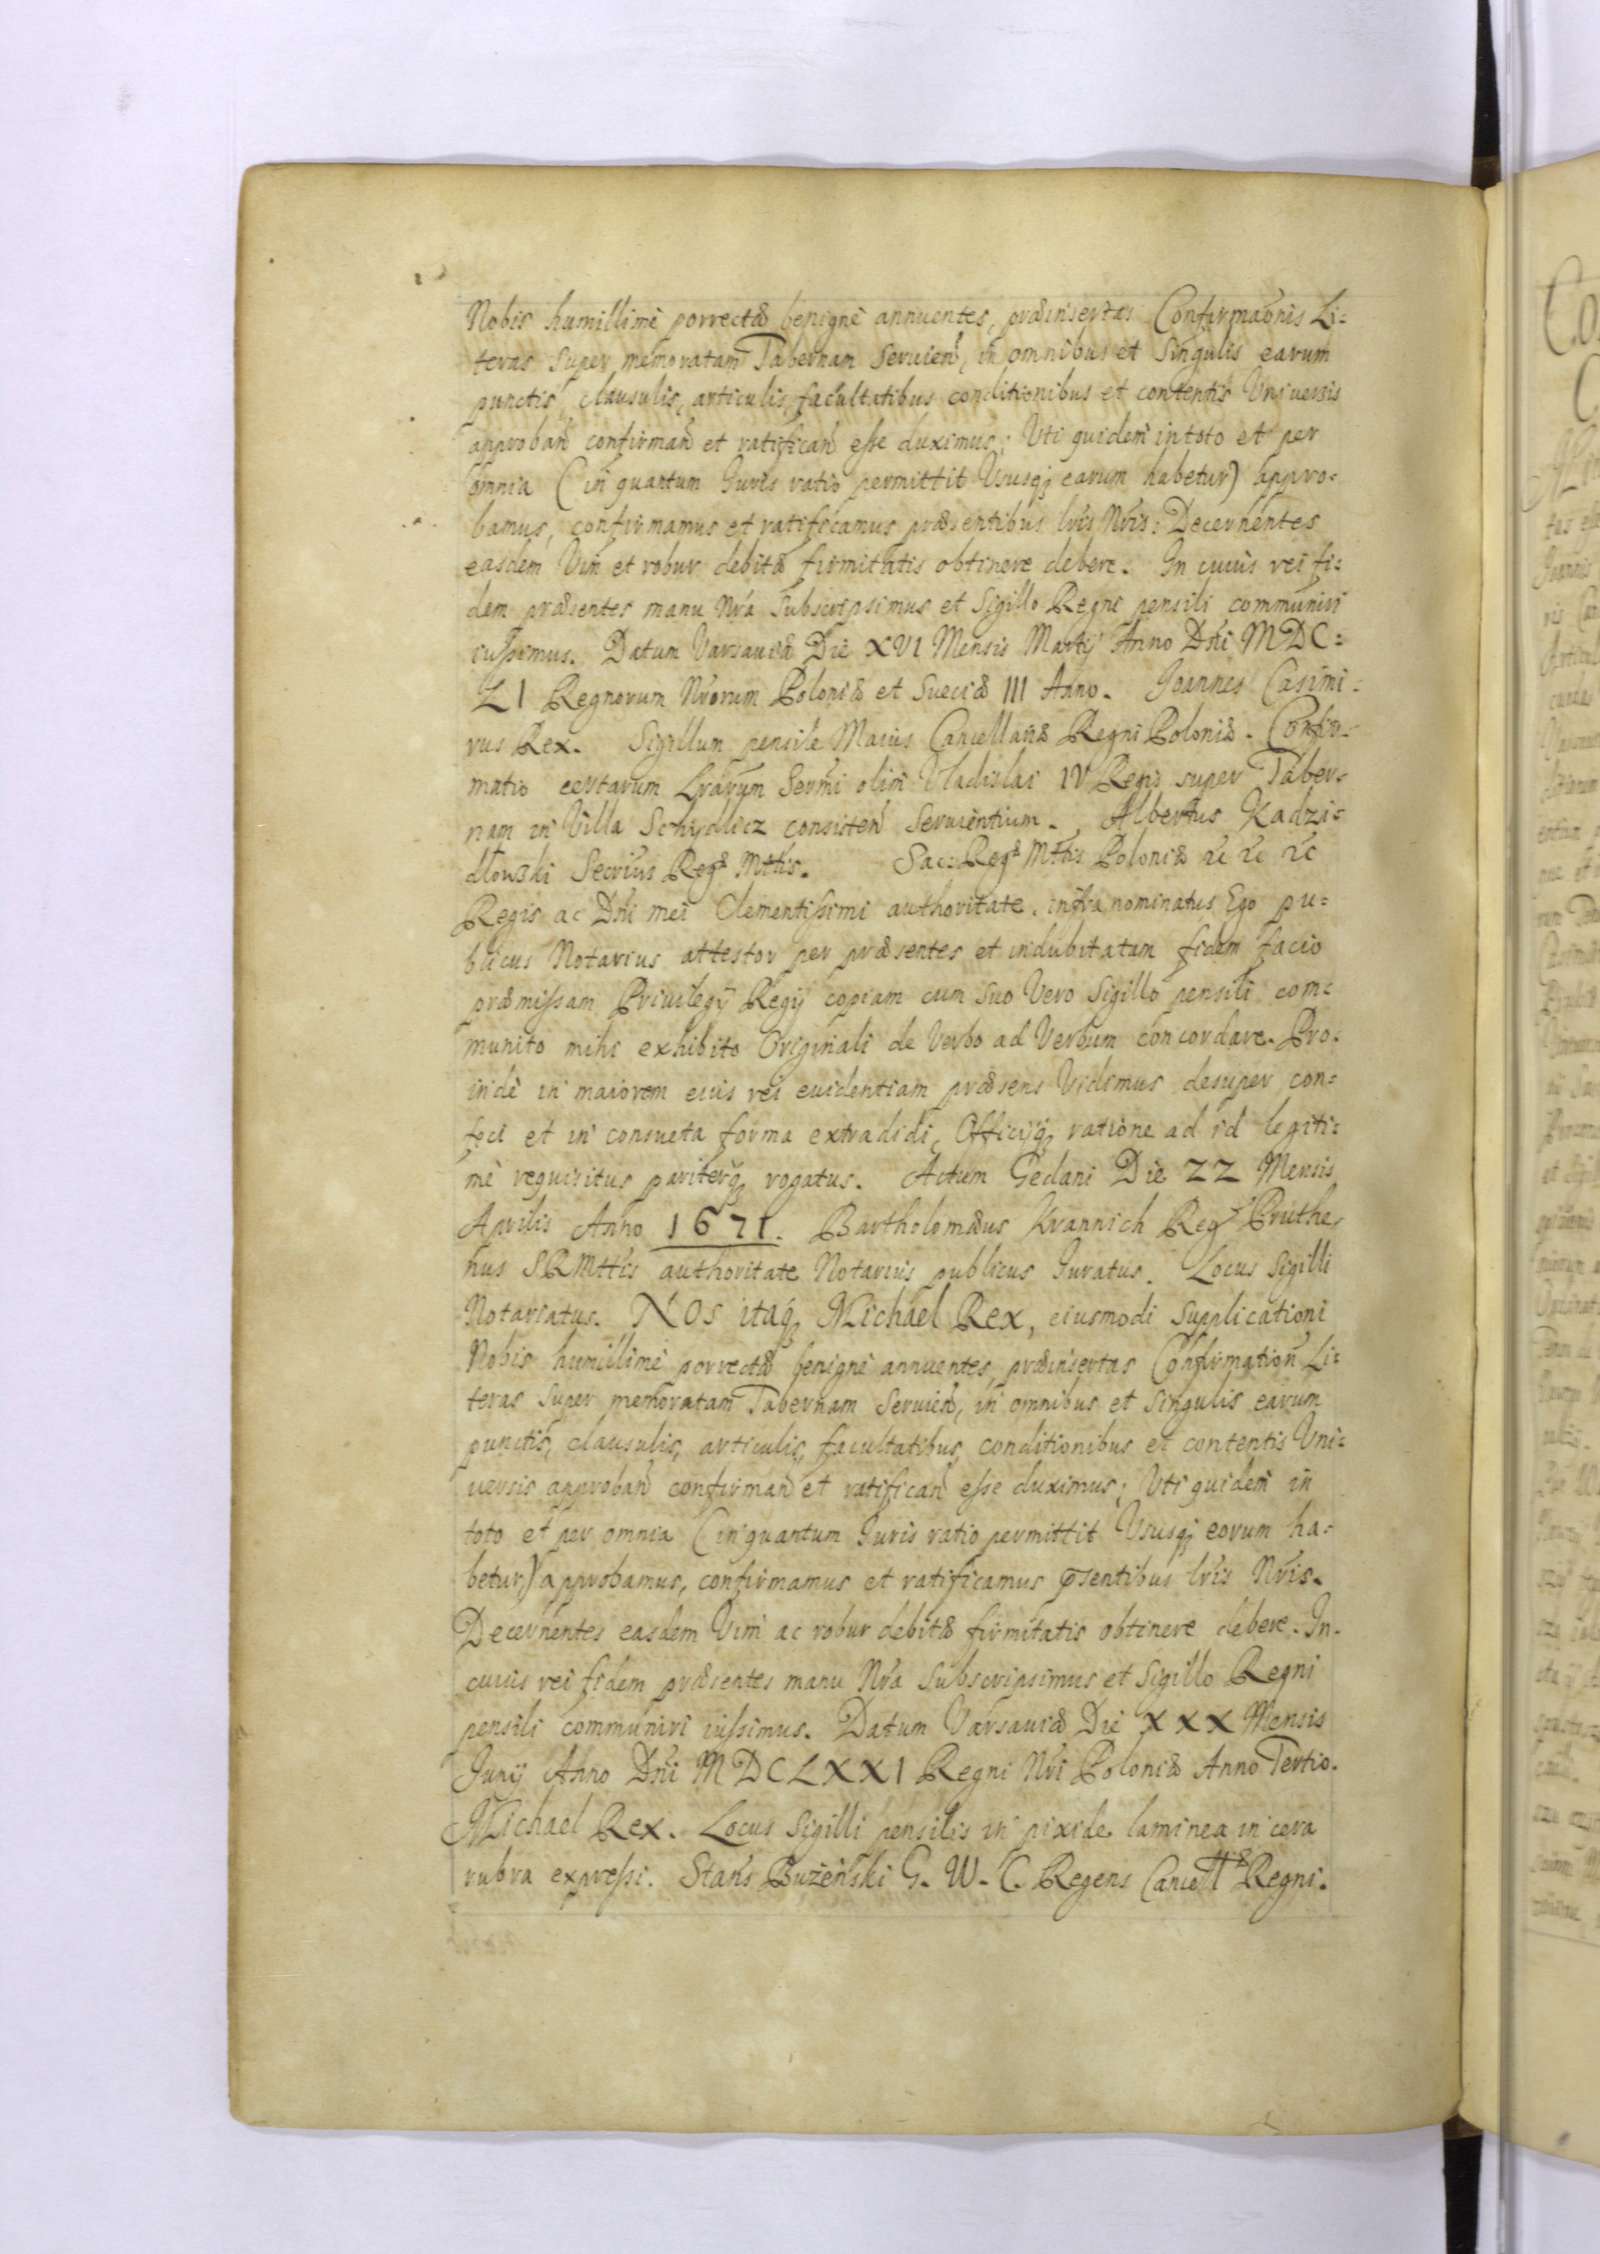 Nobis humillimè porrectæ benignè annuentes, præinsertas Confirmaõnis Li=
teras super memoratam Tabernam seruieñ, in omnibus et singulis earum
punctis, clausulis, articulis, facultatibus conditionibus et contentis Vniuersis
approbañ confirmañ et ratificañ esse duximus; Vti quidem in toto et per
omnia (in quantum Juris ratio permittit Vsusq; earum habetur) appro=
bamus, confirmamus et ratificamus præsentibus lris Nris: Decernentes
easdem Vim et robur debitæ firmitatis obtinere debere. In cuius rei fi=
dem præsentes manu Nra subscripsimus et Sigillo Regni pensili communiri
iussimus. Datum Varsauiæ Die XVI Mensis Martij Anno Dni MDC=
LI Regnorum Nrorum Poloniæ et Sueciæ III Anno. Joannes Casimi=
rus Rex. Sigillum pensile Maius Cancellariæ Regni Poloniæ. Confir=
matio certarum Lrarum Sermi olim Vladislai IV Regis super Taber=
nam in Villa Schydlicz consisteñ Seruientium. Albertus Kadzi=
dłowski Secrius Regæ Mttis. Sac: Regæ Mttis Poloniæ &c &c &c
Regis ac Dni mei Clementissimi authoritate, infra nominatus Ego pu=
blicus Notarius attestor per præsentes et indubitatam fidem facio
præmissam Priuilegij Regij copiam cum suo Vero Sigillo pensili com=
munito mihi exhibito Originali de Verbo ad Verbum concordare. Pro=
indè in maiorem eius rei euidentiam præsens Vidimus desuper con=
feci et in consueta forma extradidi, Officijq; ratione ad id legiti=
mè requisitus pariterq; rogatus. Actum Gedani Die 22 Mensis
Aprilis Anno 1671. Bartholomæus Krannich Reg: Pruthe
nus SRMttis authoritate Notarius publicus Juratus. Locus Sigilli
Notariatus. NOS itaq; Michael Rex, eiusmodi supplicationi
Nobis humillimè porrectæ benignè annuentes, præinsertas Confirmation Li=
teras super memoratam Tabernam seruieñ, in omnibus et singulis earum
punctis, clausulis, articulis, facultatibus, conditionibus et contentis Vni=
uersis approbañ confirmañ et ratificañ esse duximus; Vti quidem in
toto et per omnia (in quantum Juris ratio permittit Vsusq; eorum ha=
betur,) approbamus, confirmamus et ratificamus psentibus lris Nris.
Decernentes easdem Vim ac robur debitæ firmitatis obtinere debere. In
cuius rei fidem præsentes manu Nra subscripsimus et Sigillo Regni
pensili communiri iussimus. Datum Varsauiæ Die XXX Mensis
Junij Anno Dni MDCLXXI Regni Nri Poloniæ Anno Tertio.
Michael Rex. Locus Sigilli pensilis in pixide laminea in cera
rubra expressi. Stans Bużeński G. W. C. Regens Cancellæ Regni.